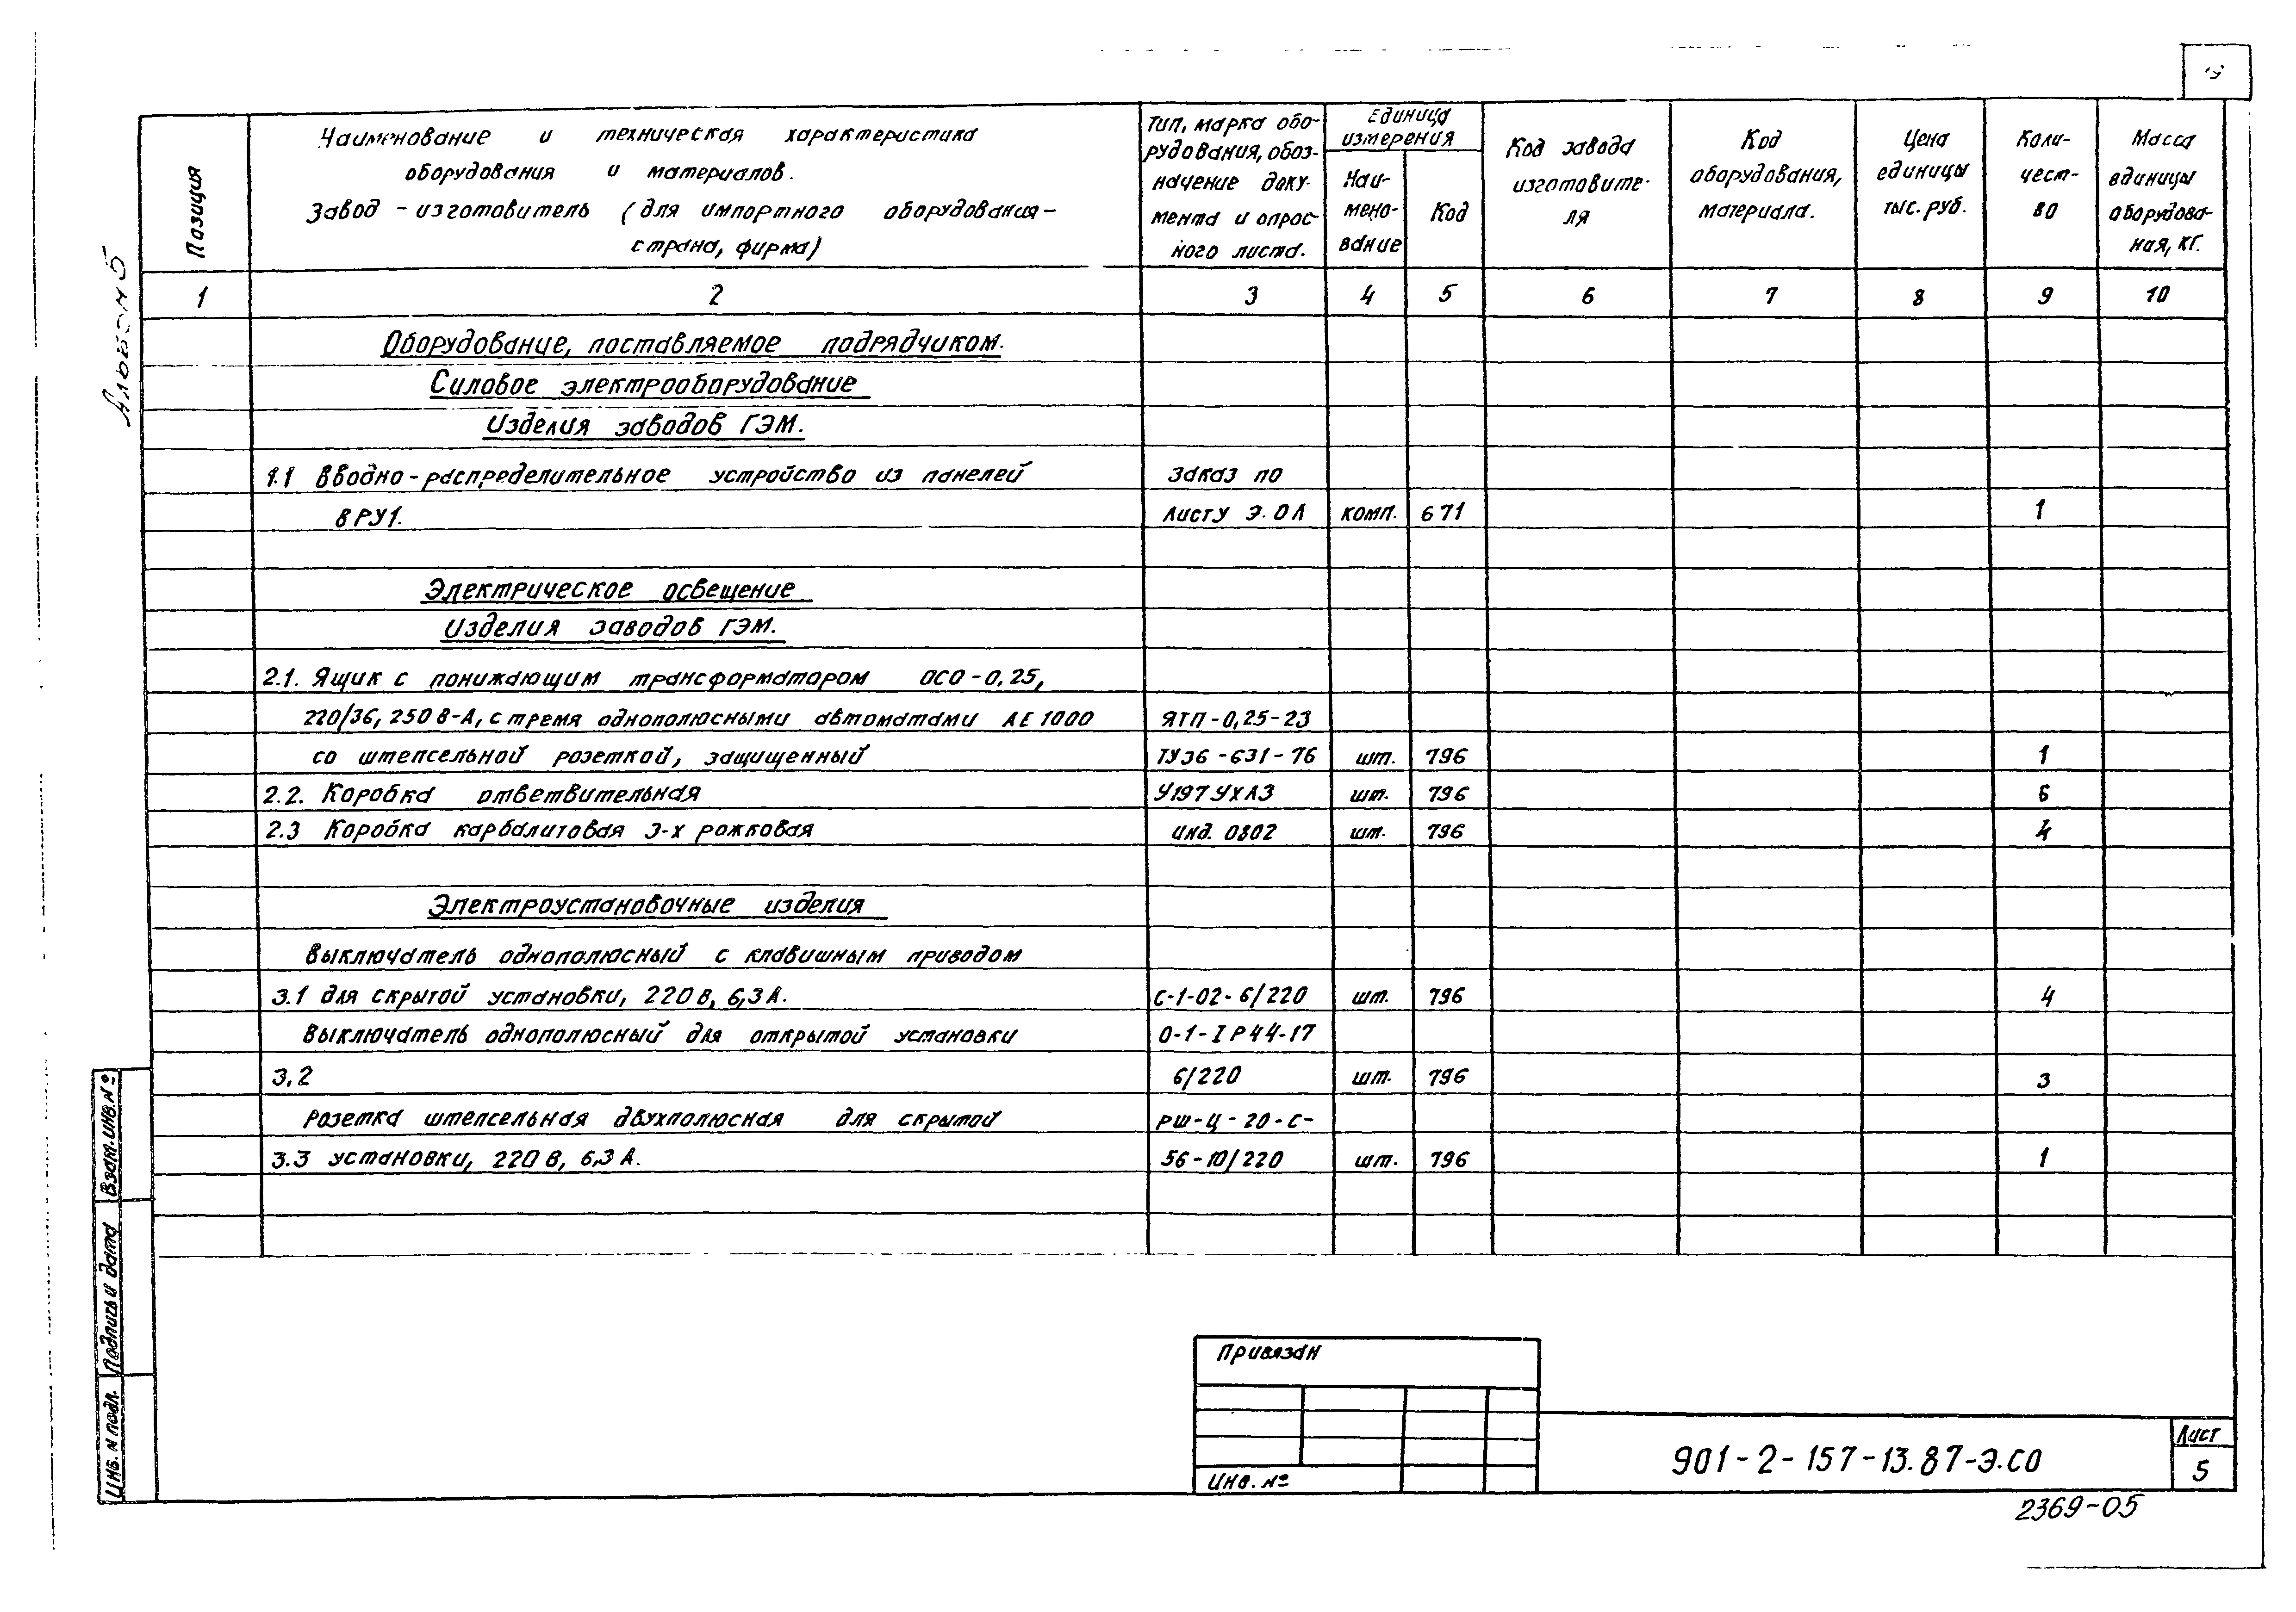 Альбом 5
Позиция
Наименование и техническая характеристика
оборудования и материалов.
Завод - изготовитель (для импортного оборудования -
страна, фирма)
Тип, марка обо-
рудования, обоз-
начение доку-
мента и опрос-
ного листа.
Единица
измерения
Наи-
мено-
вание
Код
Код завода
изготовите-
ля
Код
оборудования,
материала.
Цена
единицы
тыс. руб.
Коли-
чест-
во
Масса
единицы
оборудова-
ная, кг.
1 2 3 4 5 6 7 8 9 10
Оборудование, поставляемое подрядчиком.
Силовое электрооборудование
Изделия заводов ГЭМ.
1.1 Вводно-распределительное устройство из панелей Заказ по
ВРУ1. листу Э.ОЛ комп. 671 1
Электрическое освещение
Изделия заводов ГЭМ.
2.1. Ящик с понижающим трансформатором ОСО-0,25,
220/36, 250 В-А, с тремя однополюсными автоматами АЕ 1000 ЯТП-0,25-23
со штепсельной розеткой, защищенный ТУ36-631-76 шт. 796 1
2.2. Коробка ответвительная У197УХЛ3 шт. 796 6
2.3 Коробка карболитовая 3-х рожковая инд. 0802 шт. 796 4
Электроустановочные изделия
Выключатель однополюсный с клавишным приводом
3.1 для скрытой установки, 220 В, 6,3 А. С-1-02-6/220 шт. 796 4
Выключатель однополюсный для открытой установки О-1-IP44-17
3.2 6/220 шт. 796 3
Розетка штепсельная двухполюсная для скрытой РШ-Ц-20-С-
3.3 установки, 220 В, 6,3 А. 56-10/220 шт. 796 1
Взам. инв. №
Подпись и дата
Инв. N подл.
Привязан
Инв. №
901-2-157-13.87-Э.СО
Лист
5
2369-05